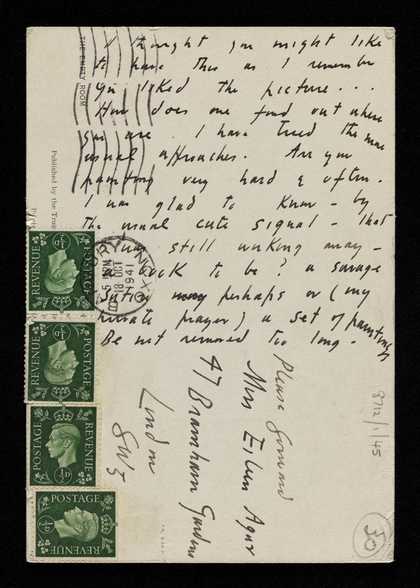 I thought you might like
to have this as I remember
you liked the picture...
How does one find out where
you are I have tried the more
usual approaches. Are you
painting very hard & often.
I was glad to know - by
the usual cute signal - that
still working away -
to be? a savage
perhaps or (my
private prayer) a set of paintings
Be not removed too long -
Please forward
Mrs Eileen Agar
47 Bramham Gardens
London
SW5
THE EMPTY ROOM
Published by the
18 OCT
1941
OXON
POSTAGE
REVENUE
½D
POSTAGE
REVENUE
½D
POSTAGE
REVENUE
½D
POSTAGE
REVENUE
½D
8712/1/45
50